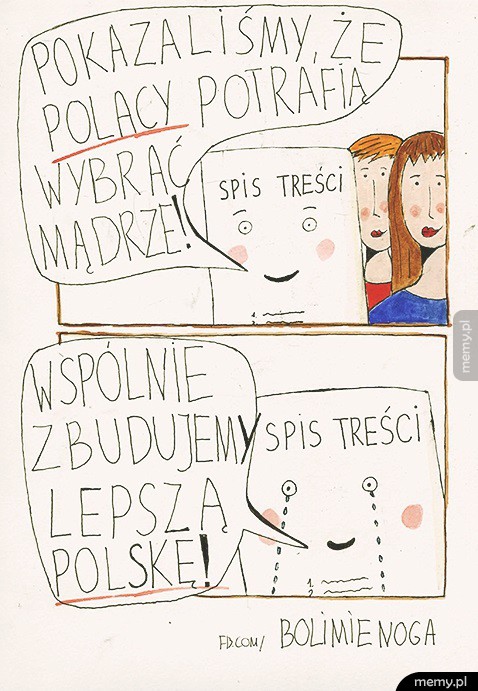 POKAZALIŚMY, ŻE
POLACY POTRAFIĄ
WYBRAĆ
MĄDRZE!
SPIS TREŚCI
1.
WSPÓLNIE
ZBUDUJEMY
LEPSZĄ
POLSKĘ!
SPIS TREŚCI
1.
2.
FD.COM/ BOLIMIENOGA
memy.pl
memy.pl